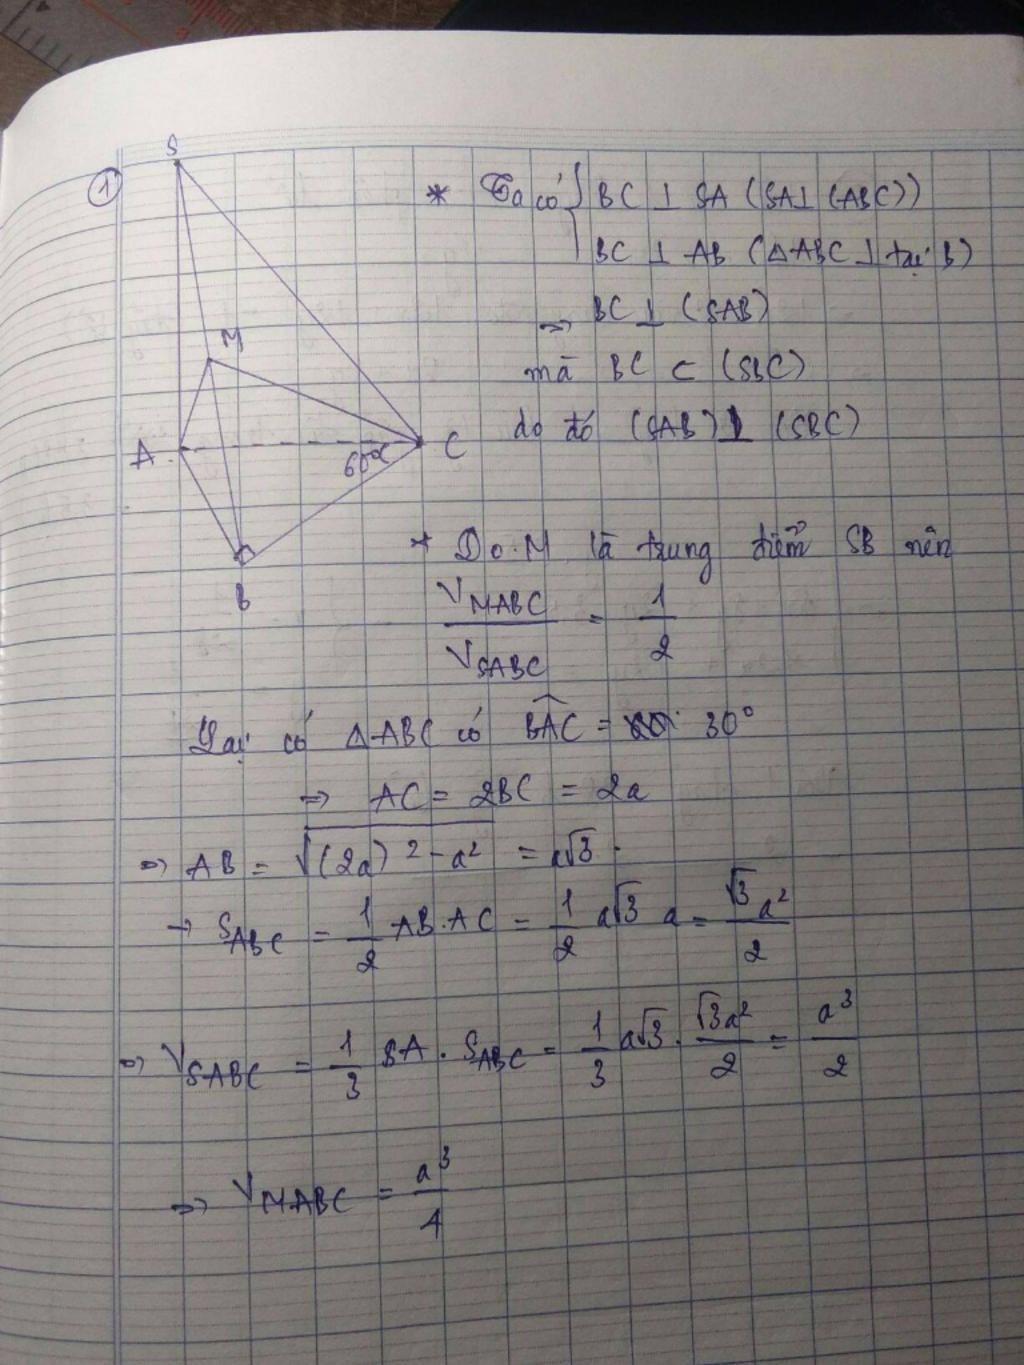 ①
S
M
A
60°
C
B
* Ta có { BC ⊥ SA (SA ⊥ (ABC))
BC ⊥ AB (ΔABC ⊥ tại B)
=> BC ⊥ (SAB)
mà BC ⊂ (SBC)
do đó (SAB) ⊥ (SBC)
* Do M là trung điểm SB nên
V_MABC / V_SABC = 1/2
Lại có ΔABC có \widehat{BAC} = 30°
=> AC = 2BC = 2a
=> AB = √((2a)² - a²) = a√3
→ S_ABC = 1/2 AB.AC = 1/2 a√3 a = √3a²/2
=> V_SABC = 1/3 SA . S_ABC = 1/3 a√3 . √3a²/2 = a³/2
=> V_MABC = a³/4